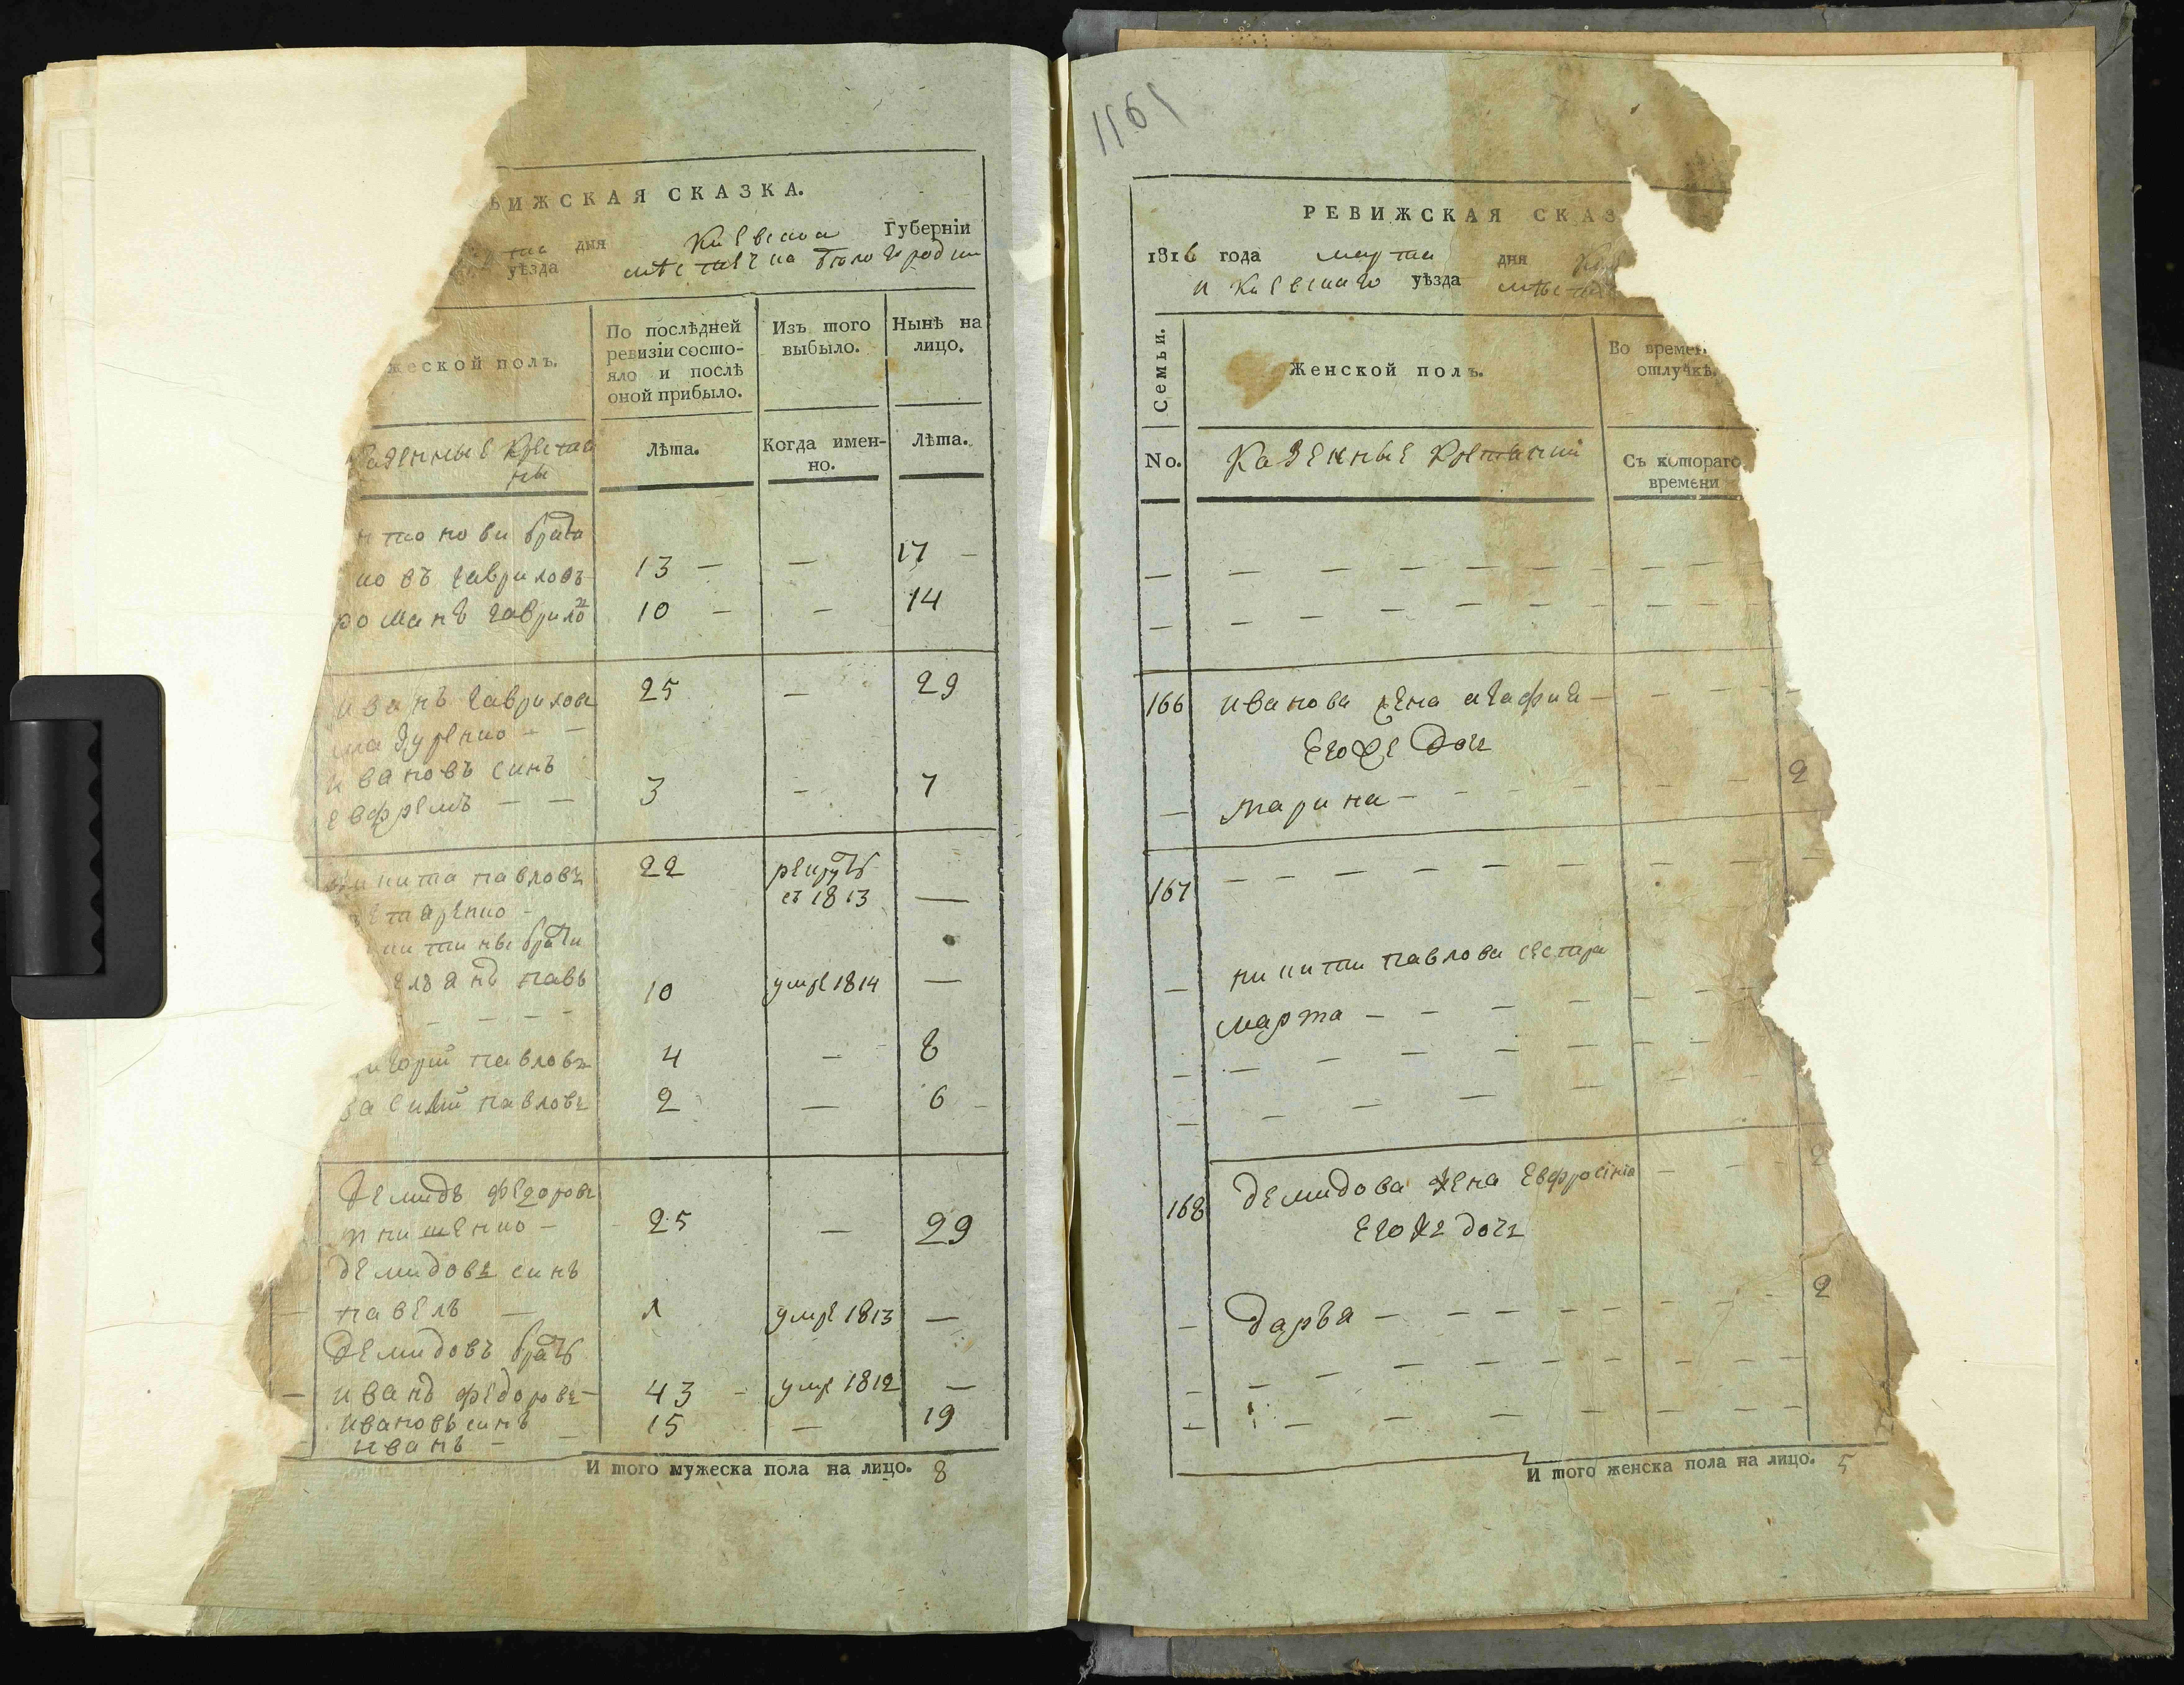 ВИЖСКАЯ СКАЗКА.
дня Киевская Губерніи
уѣзда местечка Белогородки
жеской полъ.
По послѣдней ревизіи состо-
яло и послѣ
оной прибыло.
Изъ того
выбыло.
Нынѣ на
лицо.
Лѣта.
Когда имен-
но.
Лѣта.
овъ гавриловъ 13 — — 17 —
романъ гаврило 10 — — 14
иванъ гаврилов 25 — 29
мазуренко — —
ивановъ синъ
евфремъ — — 3 — 7
никита павловъ 22 рекрутъ
съ 1813 —
павъ 10 умре 1814 —
павловъ 4 — 8
василий павловъ 2 — 6
демидъ федоров
25 — 29
демидовъ синъ
павелъ — 1 умре 1813 —
демидовъ братъ
иванъ федоровъ — 43 — умре 1812 —
ивановъ синъ 15 — 19
иванъ — —
И того мужеска пола на лицо. 8
1161
РЕВИЖСКАЯ СКАЗ
1816 года марта дня
и Киевскаго уѣзда
Семьи.
Женской полъ.
Во времен.
отлучкѣ.
No.
Казенные
Съ котораго
времени
166 иванова жена агафия —
его же доч
марина — 2
167
никити павлова сестра
марта —
2
168 демидова жена Евфросиния
его же дочь
дарья — 2
И того женска пола на лицо. 5